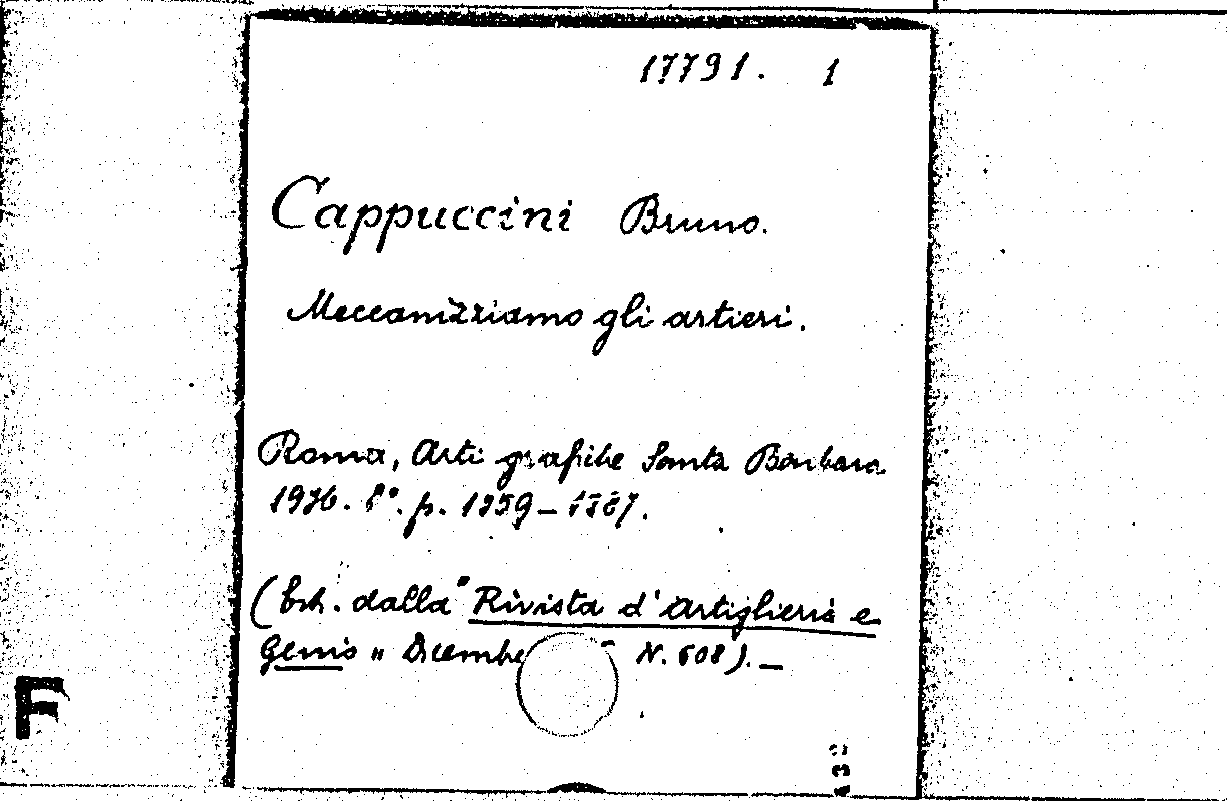 17791. 1
Cappuccini Bruno.
Meccanizziamo gli artieri.
Roma, Arti grafiche Santa Barbara
1936. 8°. p. 1259-1267.
(Estr. dalla "Rivista d'Artiglieria e
Genio" Dicembre N. 608).—
F